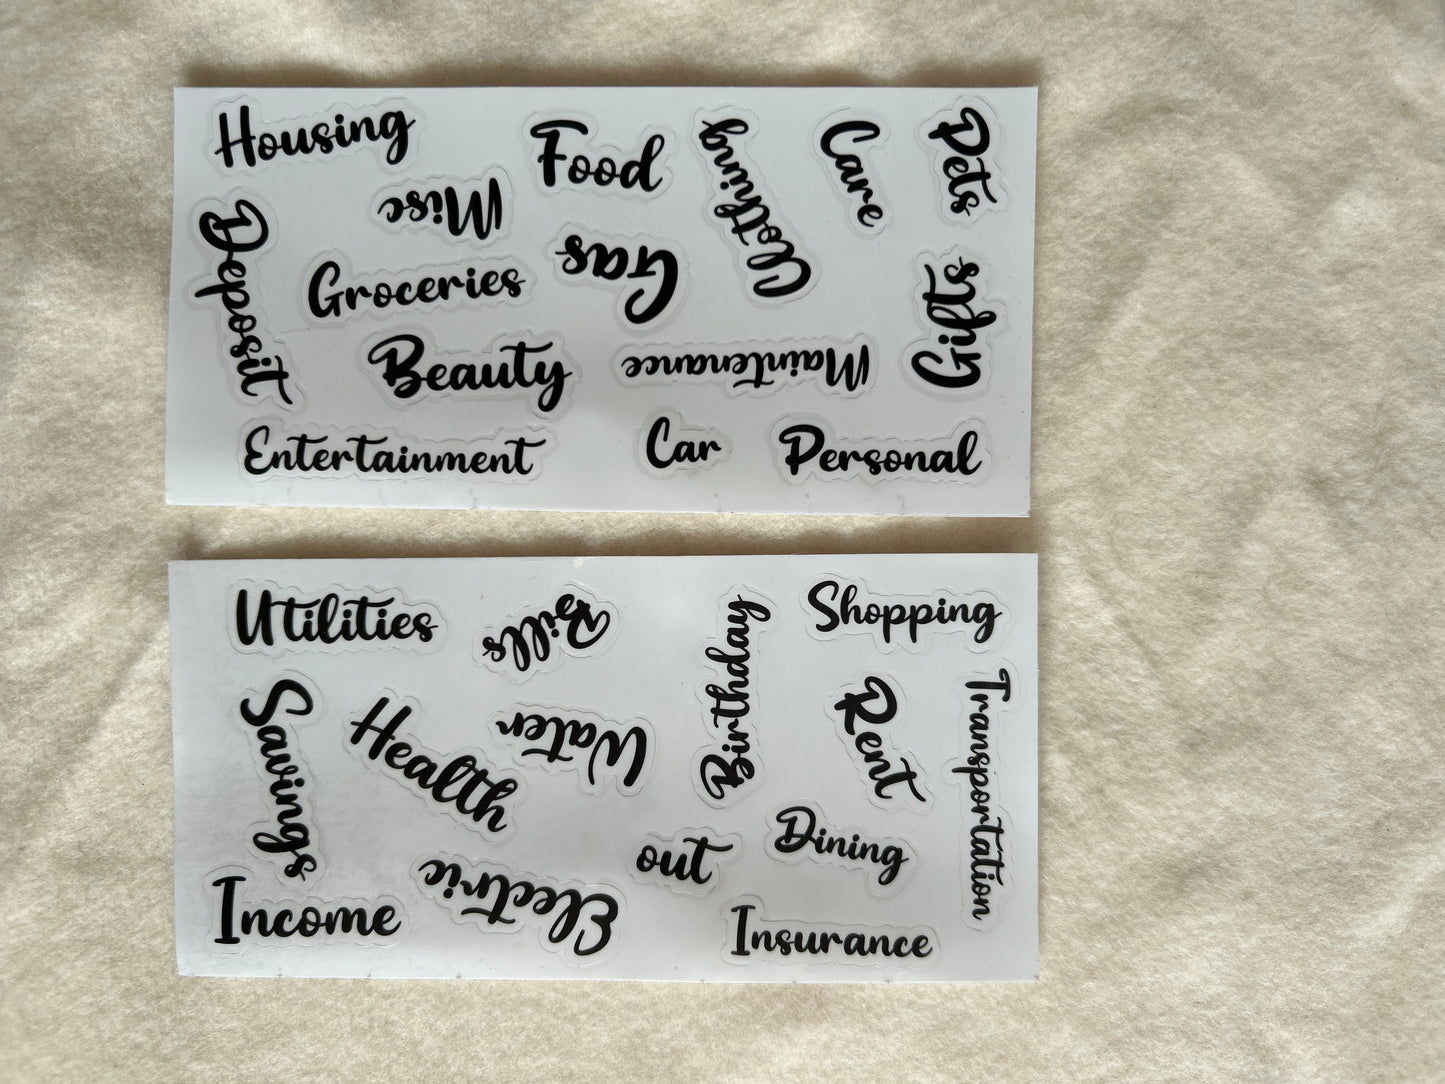 Housing
Food
Clothing
Care
Pets
Misc
Deposit
Gas
Groceries
Gifts
Beauty
Maintenance
Entertainment
Car
Personal
Utilities
Bills
Birthday
Shopping
Savings
Health
Water
Rent
Transportation
Dining
out
Electric
Income
Insurance